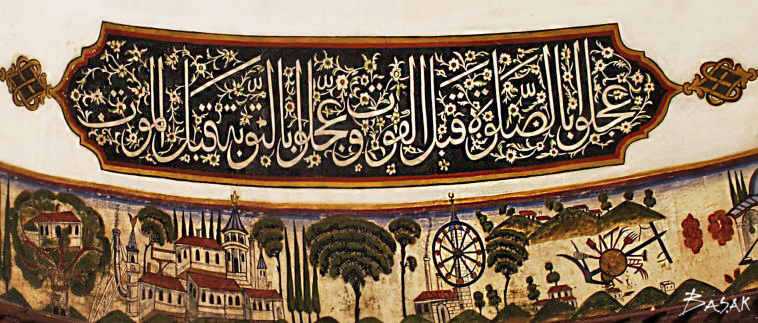 عجلوا بالصلوة قبل الفوت وعجلوا بالتوبة قبل الموت
BAŞAK